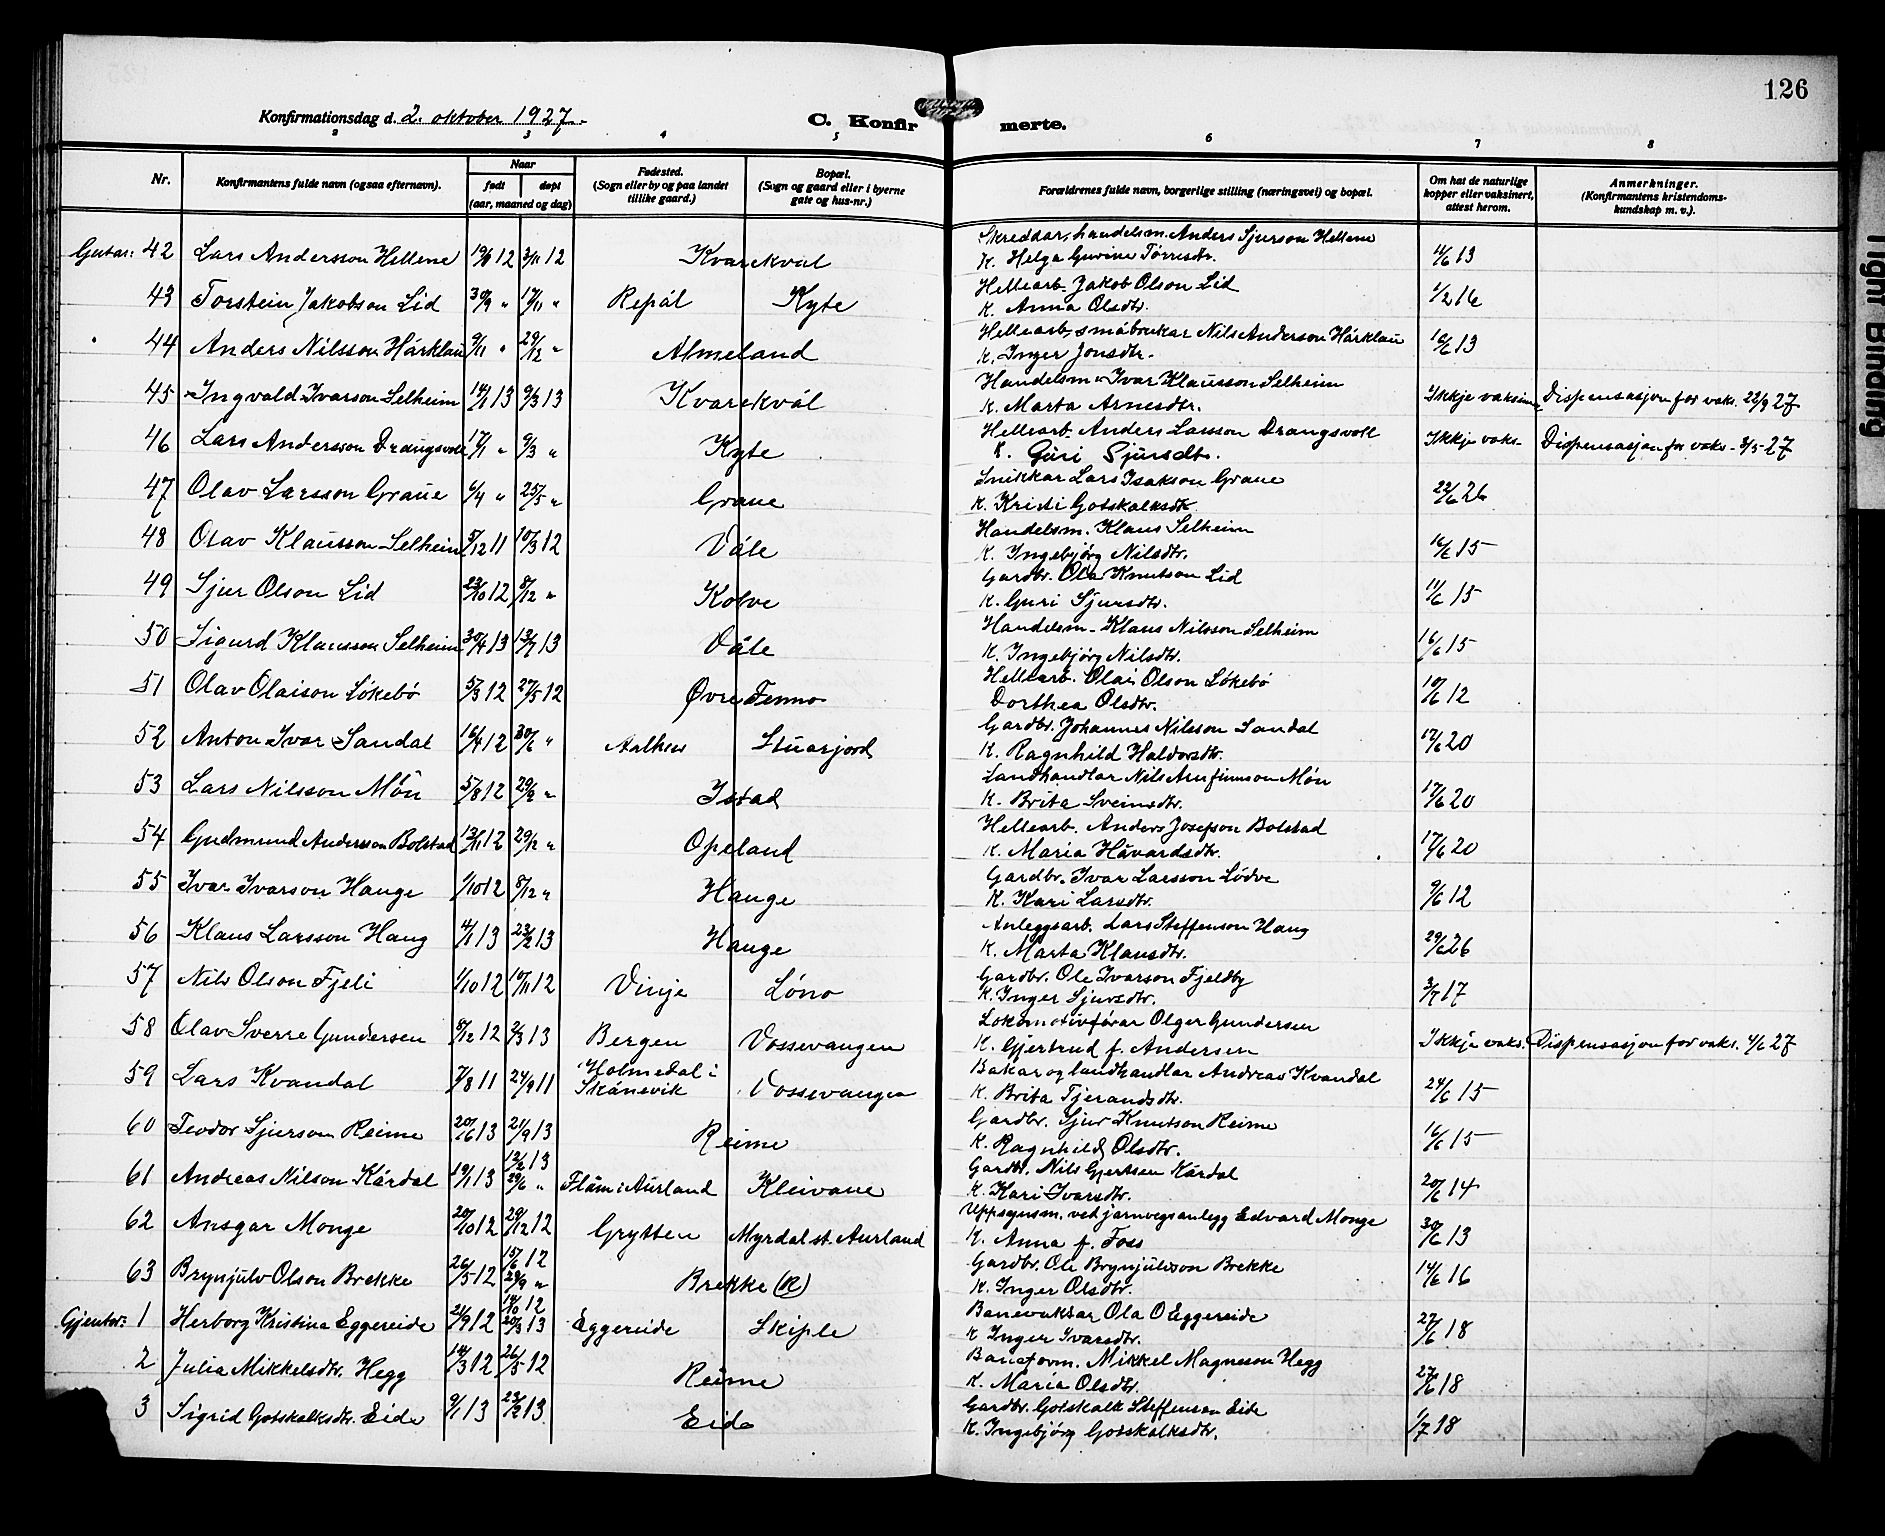 126
Konfirmationsdag d. 2. oktober 1927.
C. Konfir merte.
2 3 4 5 6 7 8
Nr. Konfirmantens fulde navn (ogsaa efternavn). Naar født døpt (aar, maaned og dag) Fødested. (Sogn eller by og paa landet tillike gaard.) Bopæl. (Sogn og gaard eller i byerne gate og hus-nr.) Forældrenes fulde navn, borgerlige stilling (næringsvei) og bopæl. Om hat de naturlige kopper eller vaksinert, attest herom. Anmerkninger. (Konfirmantens kristendoms-kundskap m. v.).
Gutar: 42 Lars Andersson Hellene 12 3/11 12 Kvarekvål Skreddar, handelsm. Anders Sjurson Hellene
K. Helga Gurine Tørresdtr. 13
43 Torstein Jakobson Lid 30/9 " 17/11 " Repål Kyte Hellearb. Jakob Olson Lid
K. Anna Olsdtr. 1/2 16
44 Anders Nilsson Hårklau 9/11 " 29/12 " Almeland Hellearb, småbrukar Nils Anderson Hårklau
K. Inger Jonsdtr. 16/6 13
45 Ingvald Ivarson Selheim 14/1 13 9/3 13 Kvarekvål Handelsm. Ivar Klausson Selheim
K. Marta Arnesdtr. Ikkje vaksine Dispensasjon for vaks. 22/9 27
46 Lars Andersson Drangsvoll 17/1 " 9/3 " Kyte Hellearb. Anders Larsson Drangsvoll
K. Guri Sjursdtr. Ikkje vaks. Dispensasjon for vaks. 3/5 27
47 Olav Larsson Graue 6/4 " 25/5 " Graue Snikkar Lars Isakson Graue
K. Kristi Gotskalksdtr. 22/6 26
48 Olav Klausson Selheim 5/12 11 10/3 12 Våle Handelsm. Klaus Selheim
K. Ingebjørg Nilsdtr. 16/6 15
49 Sjur Olson Lid 23/10 12 8/12 " Kolve Gardbr. Ola Knutson Lid
K. Guri Sjursdtr. 11/6 15
50 Sigurd Klausson Selheim 30/4 13 13/7 13 Våle Handelsm. Klaus Nilsson Selheim
K. Ingebjørg Nilsdtr. 16/6 15
51 Olav Olaison Løkebø 5/3 12 27/5 12 Øvre Fenno Hellearb. Olai Olson Løkebø
Dorthea Olsdtr. 10/6 12
52 Anton Ivar Sandal 16/4 12 30/6 " Gardbr. Johannes Nilsson Sandal
K. Ragnhild Haldorsdtr. 17/6 20
53 Lars Nilsson Møn 5/8 12 29/9 " Istad Landhandlar Nils Arnfinnson Møn
K. Brita Sveinsdtr. 17/6 20
54 Gudmund Andersson Bolstad 13/11 12 29/12 " Opeland Hellearb. Anders Josefson Bolstad
K. Maria Håvardsdtr. 17/6 20
55 Ivar Ivarson Hauge 1/10 12 8/12 " Hauge Gardbr. Ivar Larsson Lødve
K. Kari Larsdtr. 9/6 12
56 Klaus Larsson Haug 4/1 13 23/2 13 Hauge Anleggsarb. Lars Steffenson Haug
K. Marta Klausdtr. 29/6 26
57 Nils Olson Fjeli 1/10 12 10/11 12 Vinje Løno Gardbr. Ole Ivarson Fjeldby
K. Inger Sjursdtr. 3/7 17
58 Olav Sverre Gundersen 8/12 12 2/3 13 Bergen Vossevangen Lokomotivførar Olger Gundersen
K. Gjertrud f. Andersen Ikkje vaks. Dispensasjon for vaks. 4/6 27
59 Lars Kvandal 7/8 11 24/9 11 Holmedal i Skånevik Vossevangen Bakar og landhandlar Andreas Kvandal
K. Brita Tjerandsdtr. 24/6 15
60 Teodor Sjurson Reime 20/6 13 21/9 13 Reime Gardbr. Sjur Knutson Reime
K. Ragnhild Olsdtr. 16/6 15
61 Andreas Nilson Kårdal 19/1 13 12/2 13 29/6 " Flåm i Aurland Kleivane Gardbr. Nils Gjertsen Kårdal
K. Kari Ivarsdtr. 20/6 14
62 Ansgar Monge 20/10 12 29/12 12 Grytten Myrdal st. Aurland Uppsynsm. ved jarnvegsanlegg Edvard Monge
K. Anna f. Foss 30/6 13
63 Brynjulv Olson Brekke 26/5 12 15/6 12 29/9 " Brekke (R) Gardbr. Ole Brynjulvson Brekke
K. Inger Olsdtr. 14/6 16
Gjentor: 1 Herborg Kristina Eggereide 21/9 12 14/10 12 20/3 13 Eggereide Skiple Banevaktar Ola O Eggereide
K Inger Ivarsdtr. 27/6 18
2 Julia Mikkelsdtr. Hegg 14/3 12 26/5 12 Reime Baneform. Mikkel Magneson Hegg
K. Maria Olsdtr. 27/6 18
3 Sigrid Gotskalksdtr. Eide 9/1 13 23/2 13. Eide Gardbr. Gotskalk Steffenson Eide
K. Ingebjørg Gotskalksdtr. 1/7 18
Tight Binding